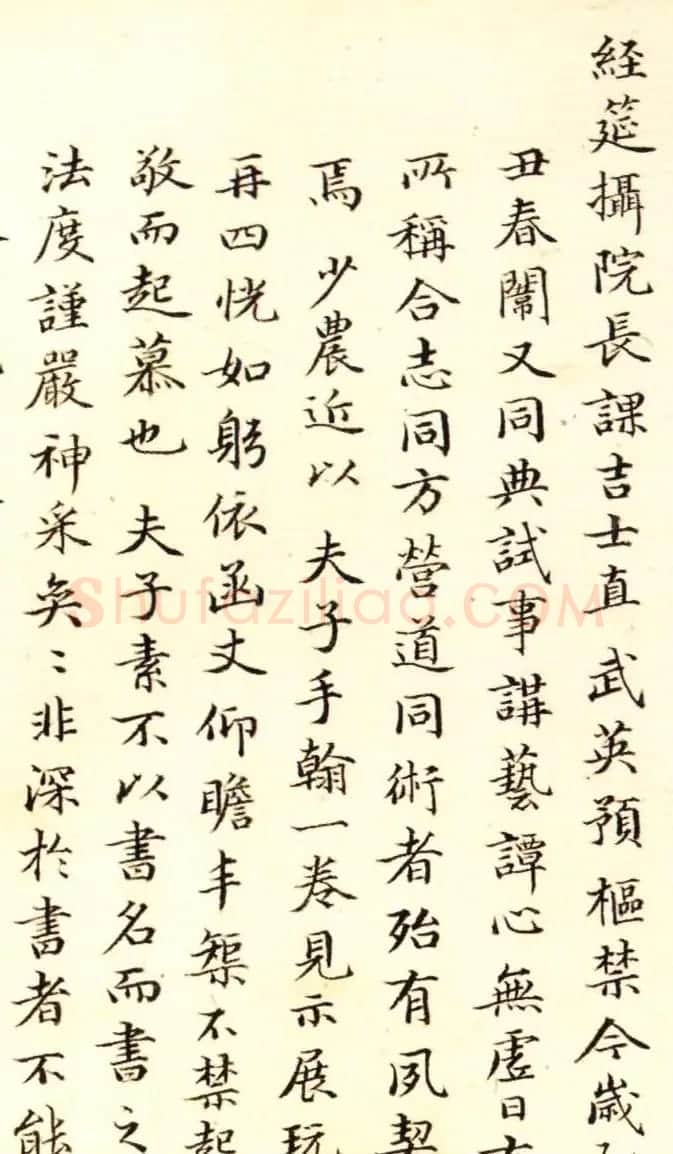 經筵攝院長課吉士直 武英預樞禁今歲
丑春闈又同典試事講藝譚心無虛日
所稱合志同方營道同術者殆有夙契
焉 少農近以 夫子手翰一卷見示展玩
再四恍如躬依函丈仰瞻丰榘不禁起
敬而起慕也 夫子素不以書名而書之
法度謹嚴神采奕〻非深於書者不能
Shufaziliao.COM